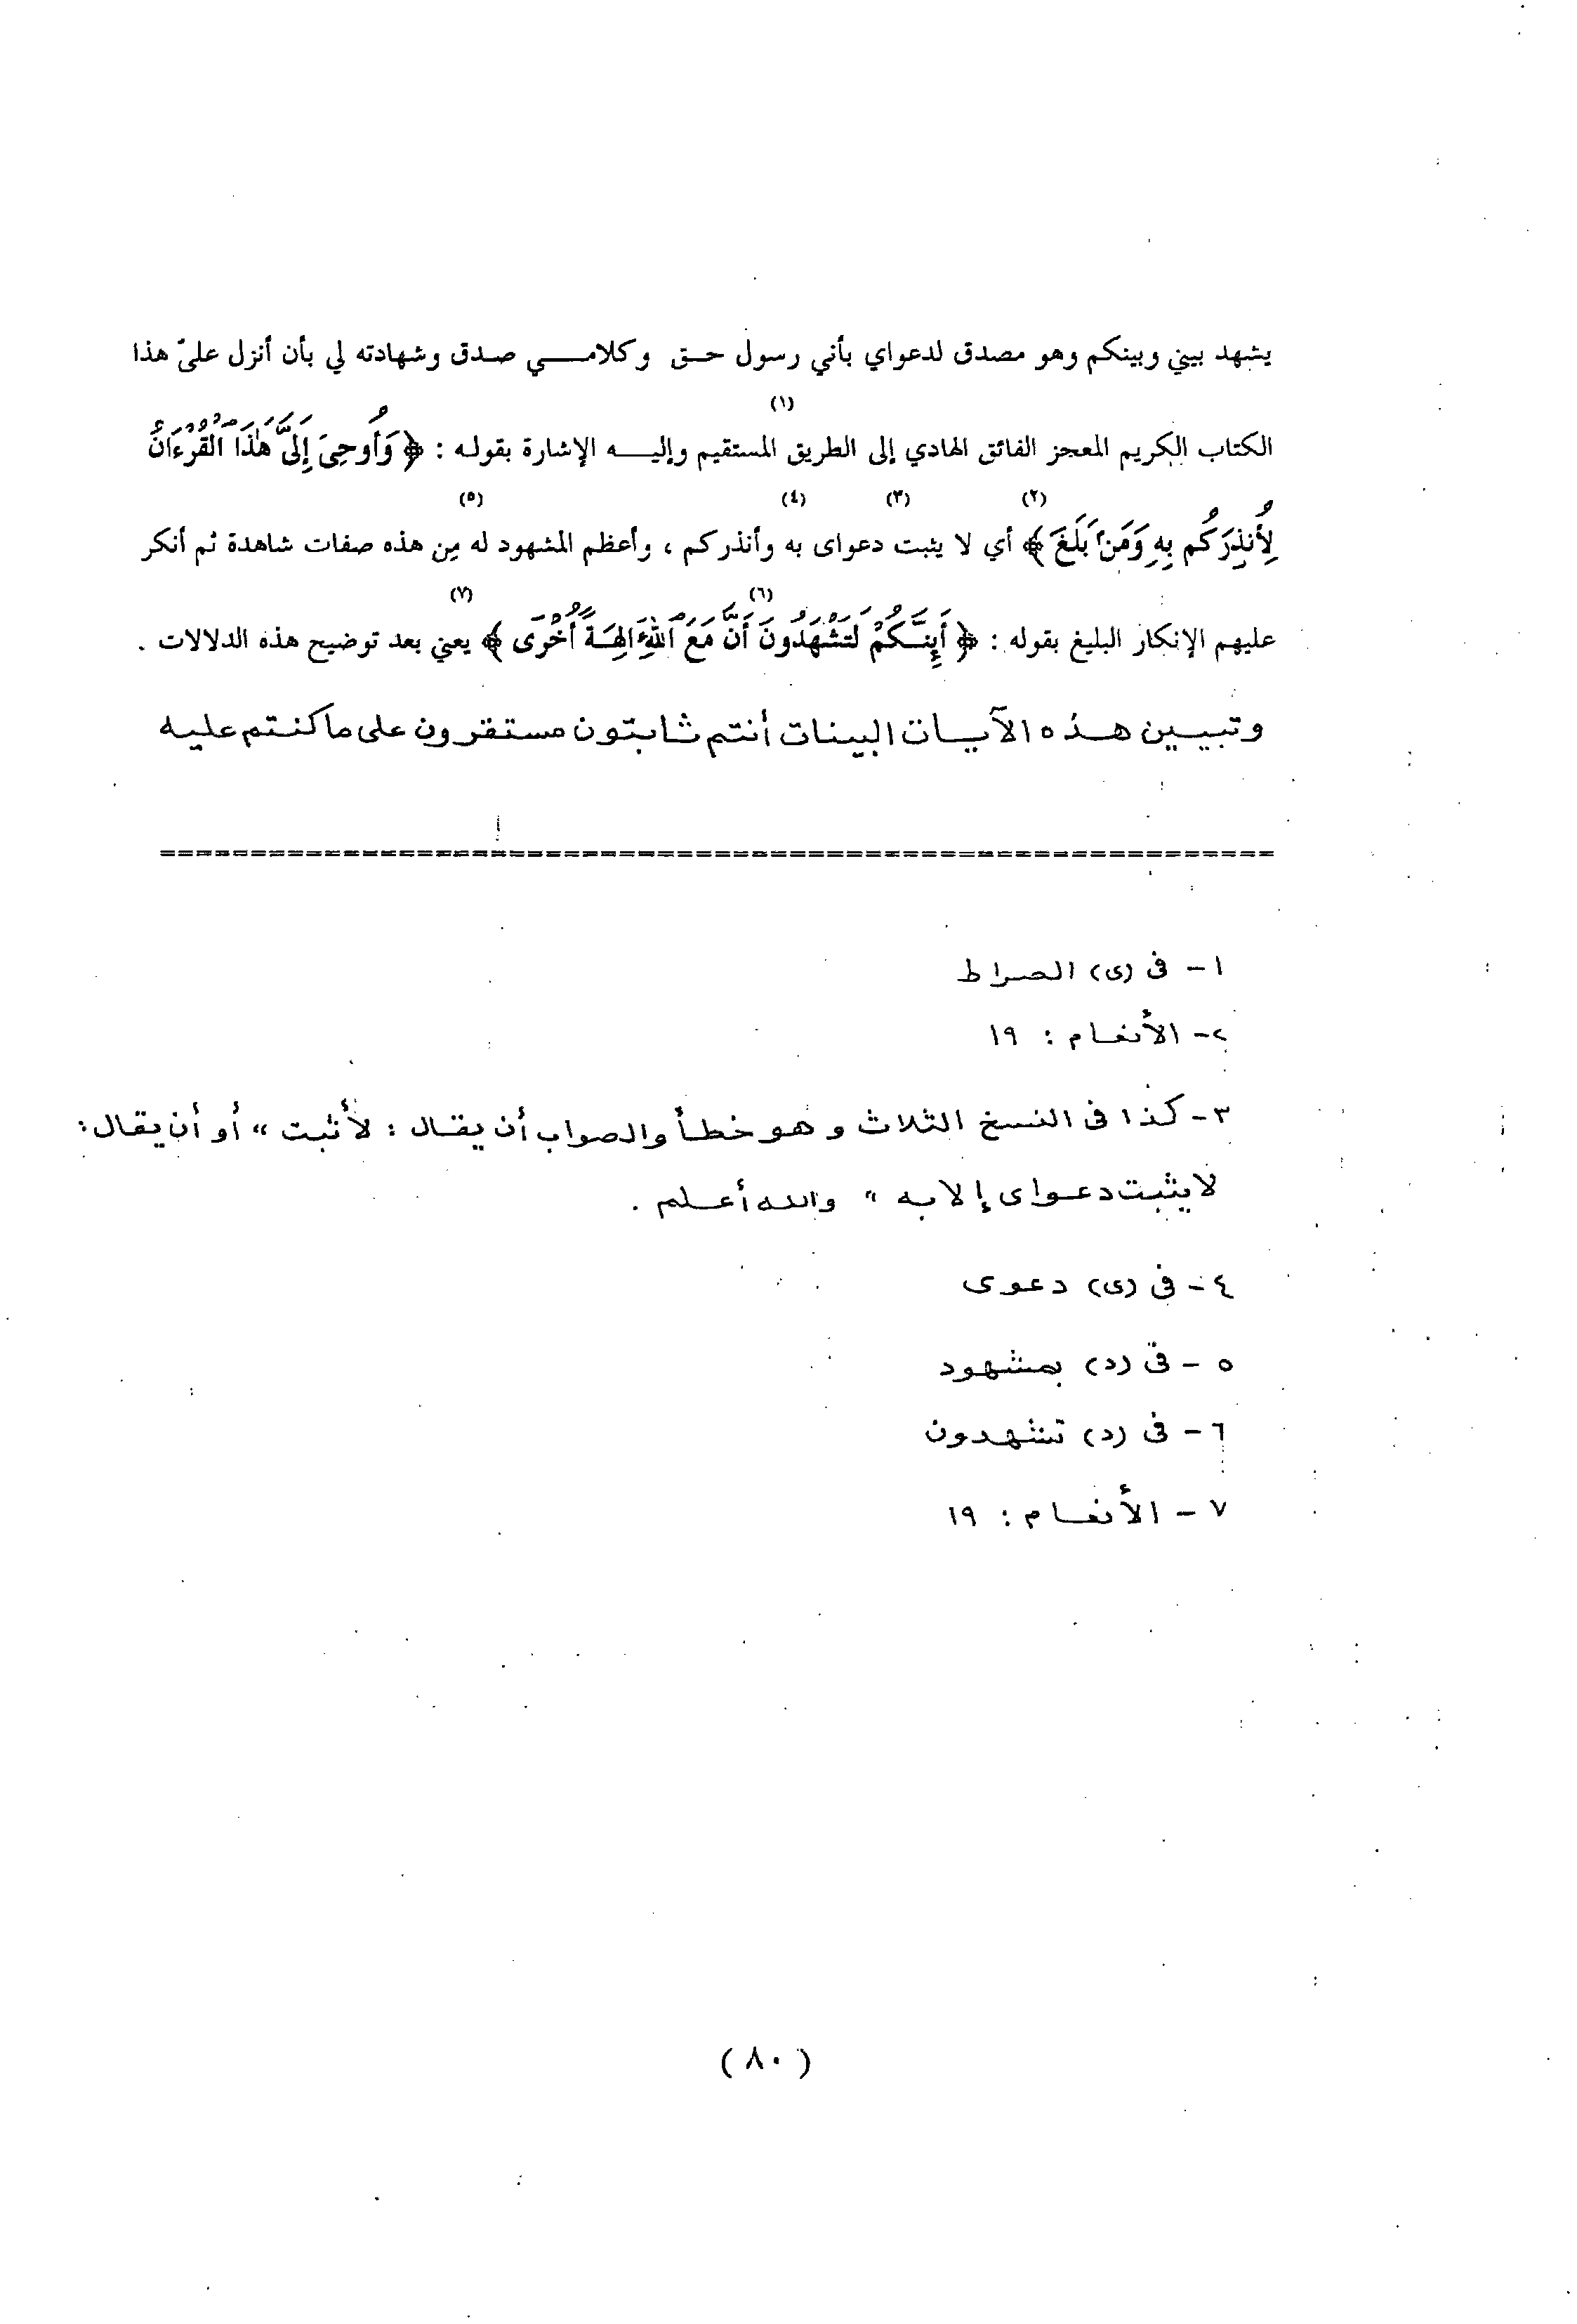 يشهد بيني وبينكم وهو مصدق لدعواي بأني رسول حق وكلامي صدق وشهادته لي بأن أنزل عليّ هذا
(١)
الكتاب الكريم المعجز الفائق الهادي إلى الطريق المستقيم وإليه الإشارة بقوله : ﴿ وَأُوحِيَ إِلَيَّ هَٰذَا الْقُرْءَانُ
(٢) (٣) (٤) (٥)
لِأُنذِرَكُم بِهِ وَمَنۢ بَلَغَ ﴾ أي لا يثبت دعواى به وأنذركم ، وأعظم المشهود له مِن هذه صفات شاهدة ثم أنكر
(٦) (٧)
عليهم الإنكار البليغ بقوله : ﴿ أَئِنَّكُمْ لَتَشْهَدُونَ أَنَّ مَعَ ٱللَّهِ ءَالِهَةً أُخْرَى ﴾ يعني بعد توضيح هذه الدلالات .
وتبيين هذه الآيات البينات أنتم ثابتون مستقرون على ما كنتم عليه
==================================================
١ - فى (ى) الصراط
٢ - الأنعام : ١٩
٣ - كذا فى النسخ الثلاث وهو خطأ والصواب أن يقال : لأثبت " أو أن يقال :
لا يثبت دعواى إلا به " والله أعلم .
٤ - فى (ى) دعوى
٥ - فى (د) بمشهود
٦ - فى (د) تشهدون
٧ - الأنعام : ١٩
( ٨٠ )